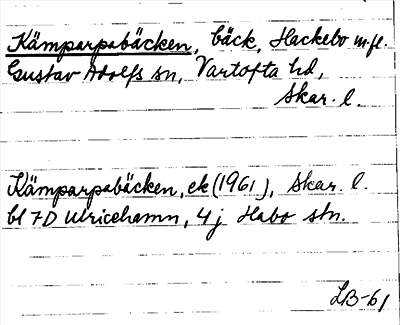 Kämparpabäcken, bäck, Hackebo m.fl.
Gustav Adolfs sn, Vartofta hd,
Skar. l.
Kämparpabäcken, ek (1961), Skar. l.
bl 7D Ulricehamn, 4j Habo stn.
LB-61